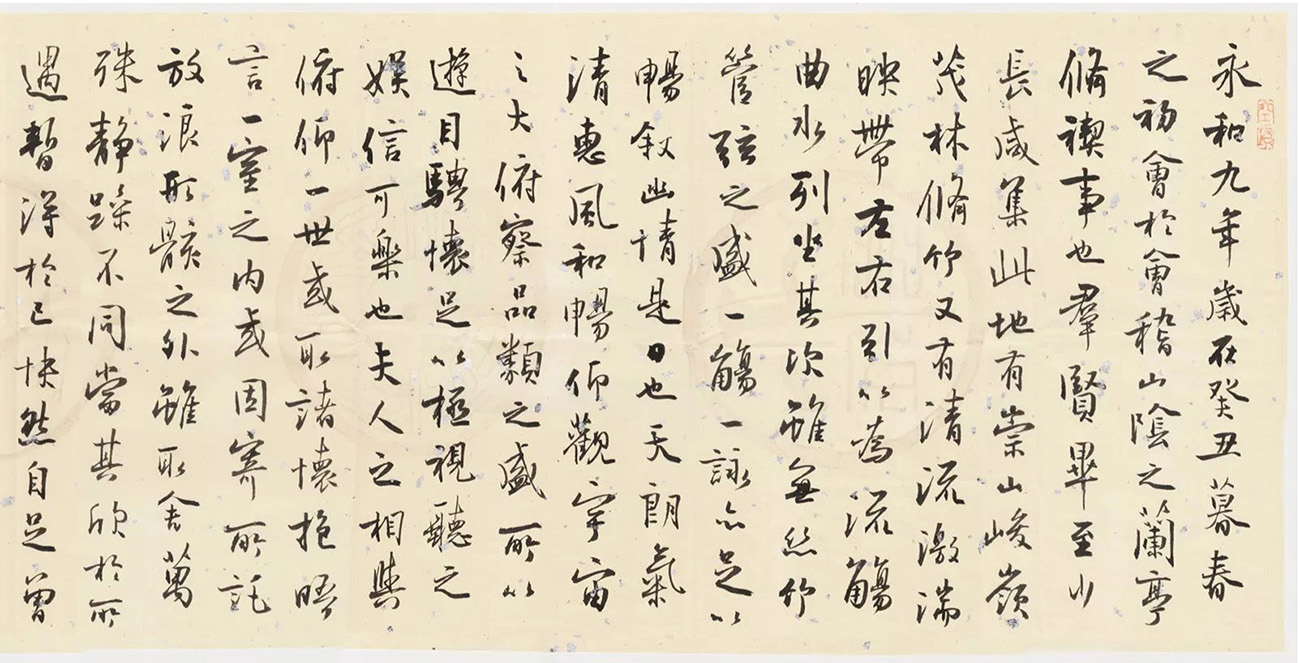 永和九年歲在癸丑暮春
之初會於會稽山陰之蘭亭
脩禊事也羣賢畢至少
長咸集此地有崇山峻嶺
茂林脩竹又有清流激湍
映帶左右引以為流觴
曲水列坐其次雖無絲竹
管弦之盛一觴一詠亦足以
暢叙幽情是日也天朗氣
清惠風和暢仰觀宇宙
之大俯察品類之盛所以
遊目騁懷足以極視聽之
娛信可樂也夫人之相與
俯仰一世或取諸懷抱晤
言一室之內或因寄所託
放浪形骸之外雖取舍萬
殊靜躁不同當其欣於所
遇暫得於己快然自足曾